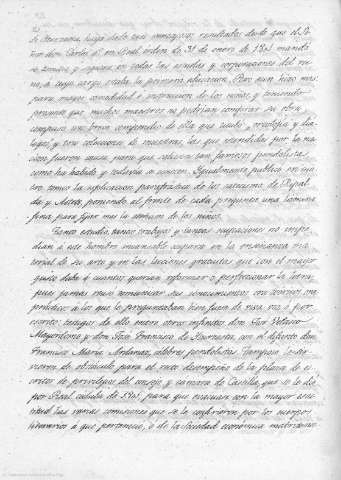 de Iturzaeta, haya dado sus ventajosos resultados desde que el Se-
ñor don Carlos 4º en Real orden de 31 de enero de 1801 mandó
se tomase y siguiese en todas las escuelas y corporaciones del rei-
no, a cuyo cargo estaba la primera educacion. Pero aun hizo mas
para mayor comodidad é instruccion de los niños, y teniendo
presente que muchos maestros no podrian comprar su obra
compuso un breve compendio de ella que unido, ortologia y dia-
logos, y una coleccion de muestras, las que estendidas por la na-
cion fueron causa para que saliesen tan famosos pendolistas
como ha habido y todavia se conocen. Igualmente publicó en un
tomo la esplicacion parafrastica de los catecismos de Ripal-
da y Astete, poniendo al frente de cada pregunta una lamina
fina para fijar mas la atencion de los niños.
Tantos estudios, penosos trabajos y tareas no impe-
dian á este hombre incansable ocuparse en la enseñanza ma-
terial de su arte y en las lecciones gratuitas que con el mayor
gusto daba á cuantos querian reformar ó perfeccionar la letra,
pues jamas reusó comunicar sus conocimientos
á los que le preguntaban bien fuese de viva voz ó por
escrito: testigos de ello entre otros infinitos don Torcuato
y don José Francisco de Iturzaeta, con el difunto don
Francisco Maria Ardanaz, celebres pendolistas. Tampoco le sir-
vieron de obstaculo para el exacto desempeño de la plaza de es-
critor de privilegios del consejo y camara de Castilla, que se le dió
por Real cedula de 1801 para que evacuara con la mayor exac-
titud las varias comisiones que se le confirieron por los cuerpos
literarios á que pertenecio, ó de la Sociedad economica matritense